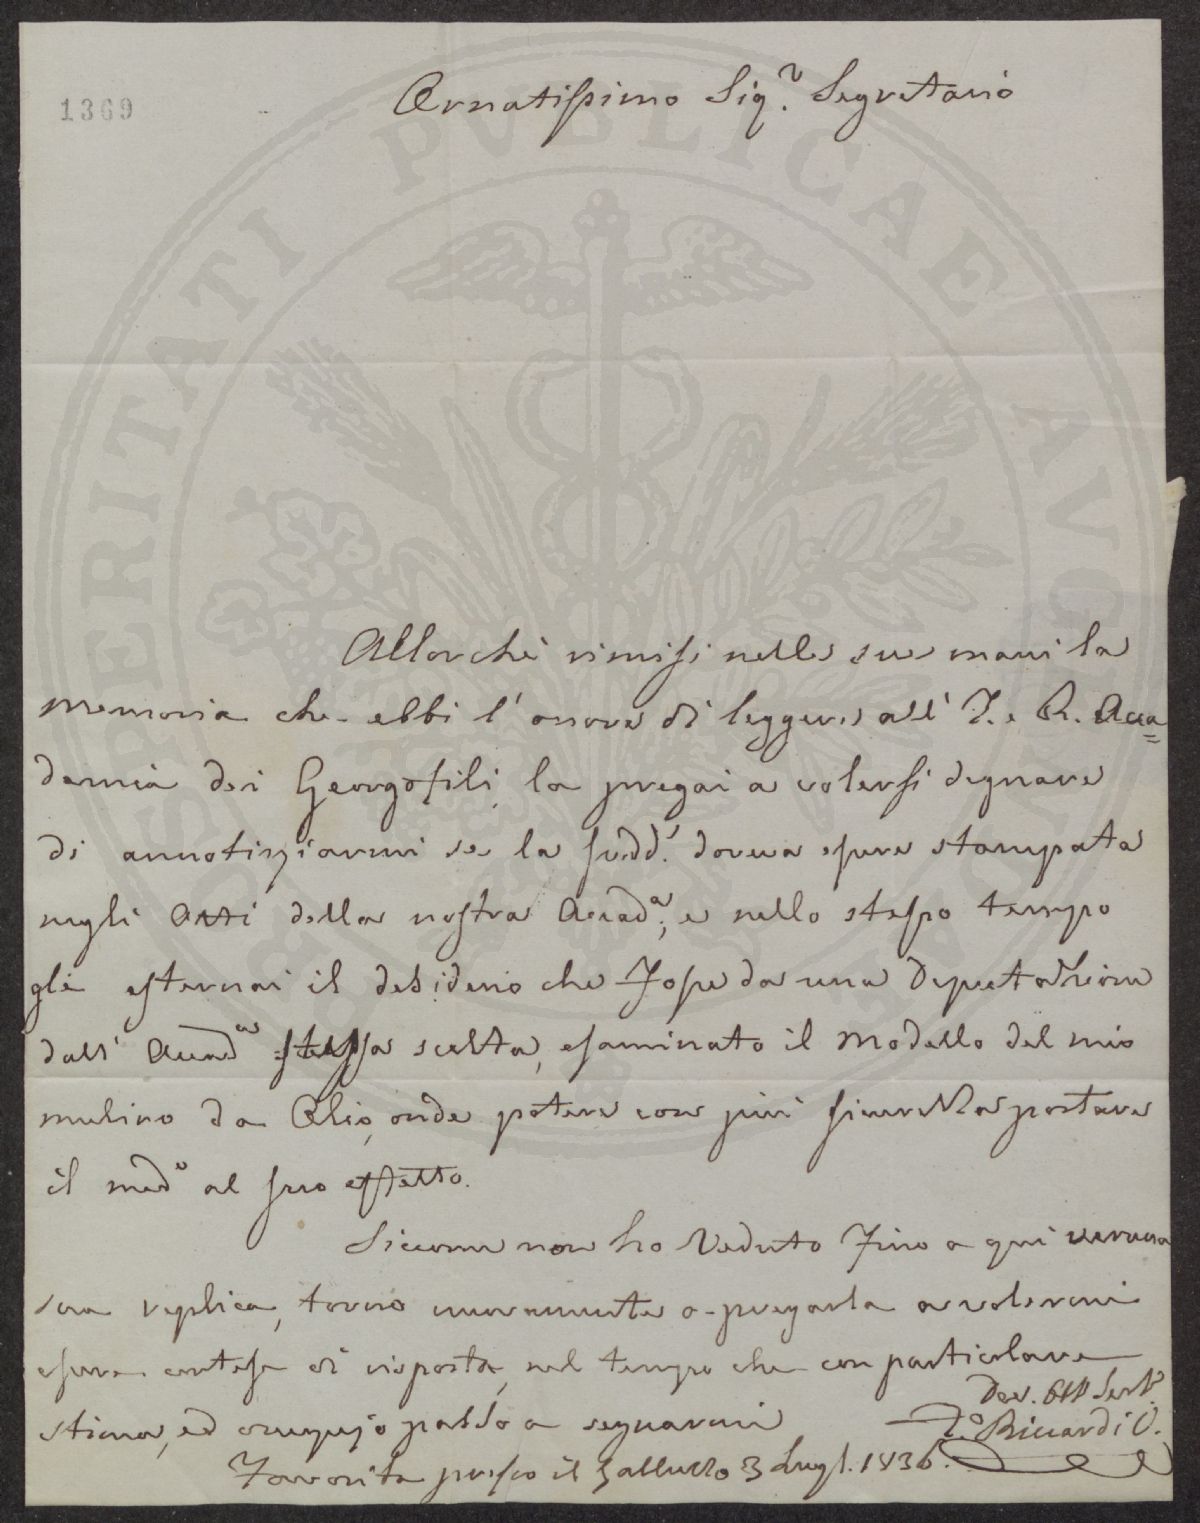 1369
Ornatissimo Sig.r Segretario
Allorchè rimisi nelle sue mani la
memoria che ebbi l'onore di leggere all' I. e R. Acca=
demia dei Georgofili, la pregai a volersi degnare
di annotiziarmi se la sudd.a doveva essere stampata
negli Atti della nostra Accad.a, e nello stesso tempo
gli esternai il desiderio che fosse da una Deputazione
dall' Accad.a stessa scelta, esaminato il modello del mio
mulino da Olio, onde potere con più sicurezza portare
il med.o al suo effetto.
Siccome non ho veduto fino a qui veruna
sua replica, torno nuovamente a pregarla a volermi
essere cortese di risposta, nel tempo che con particolare
stima, ed ossequio passo a segnarmi
Dev. Obb. Serv.e
F.o Riccardi V.
Favorita presso il Galluzzo 3 Lugl. 1836.
PROSPERITATI PVBLICAE AVGENDAE